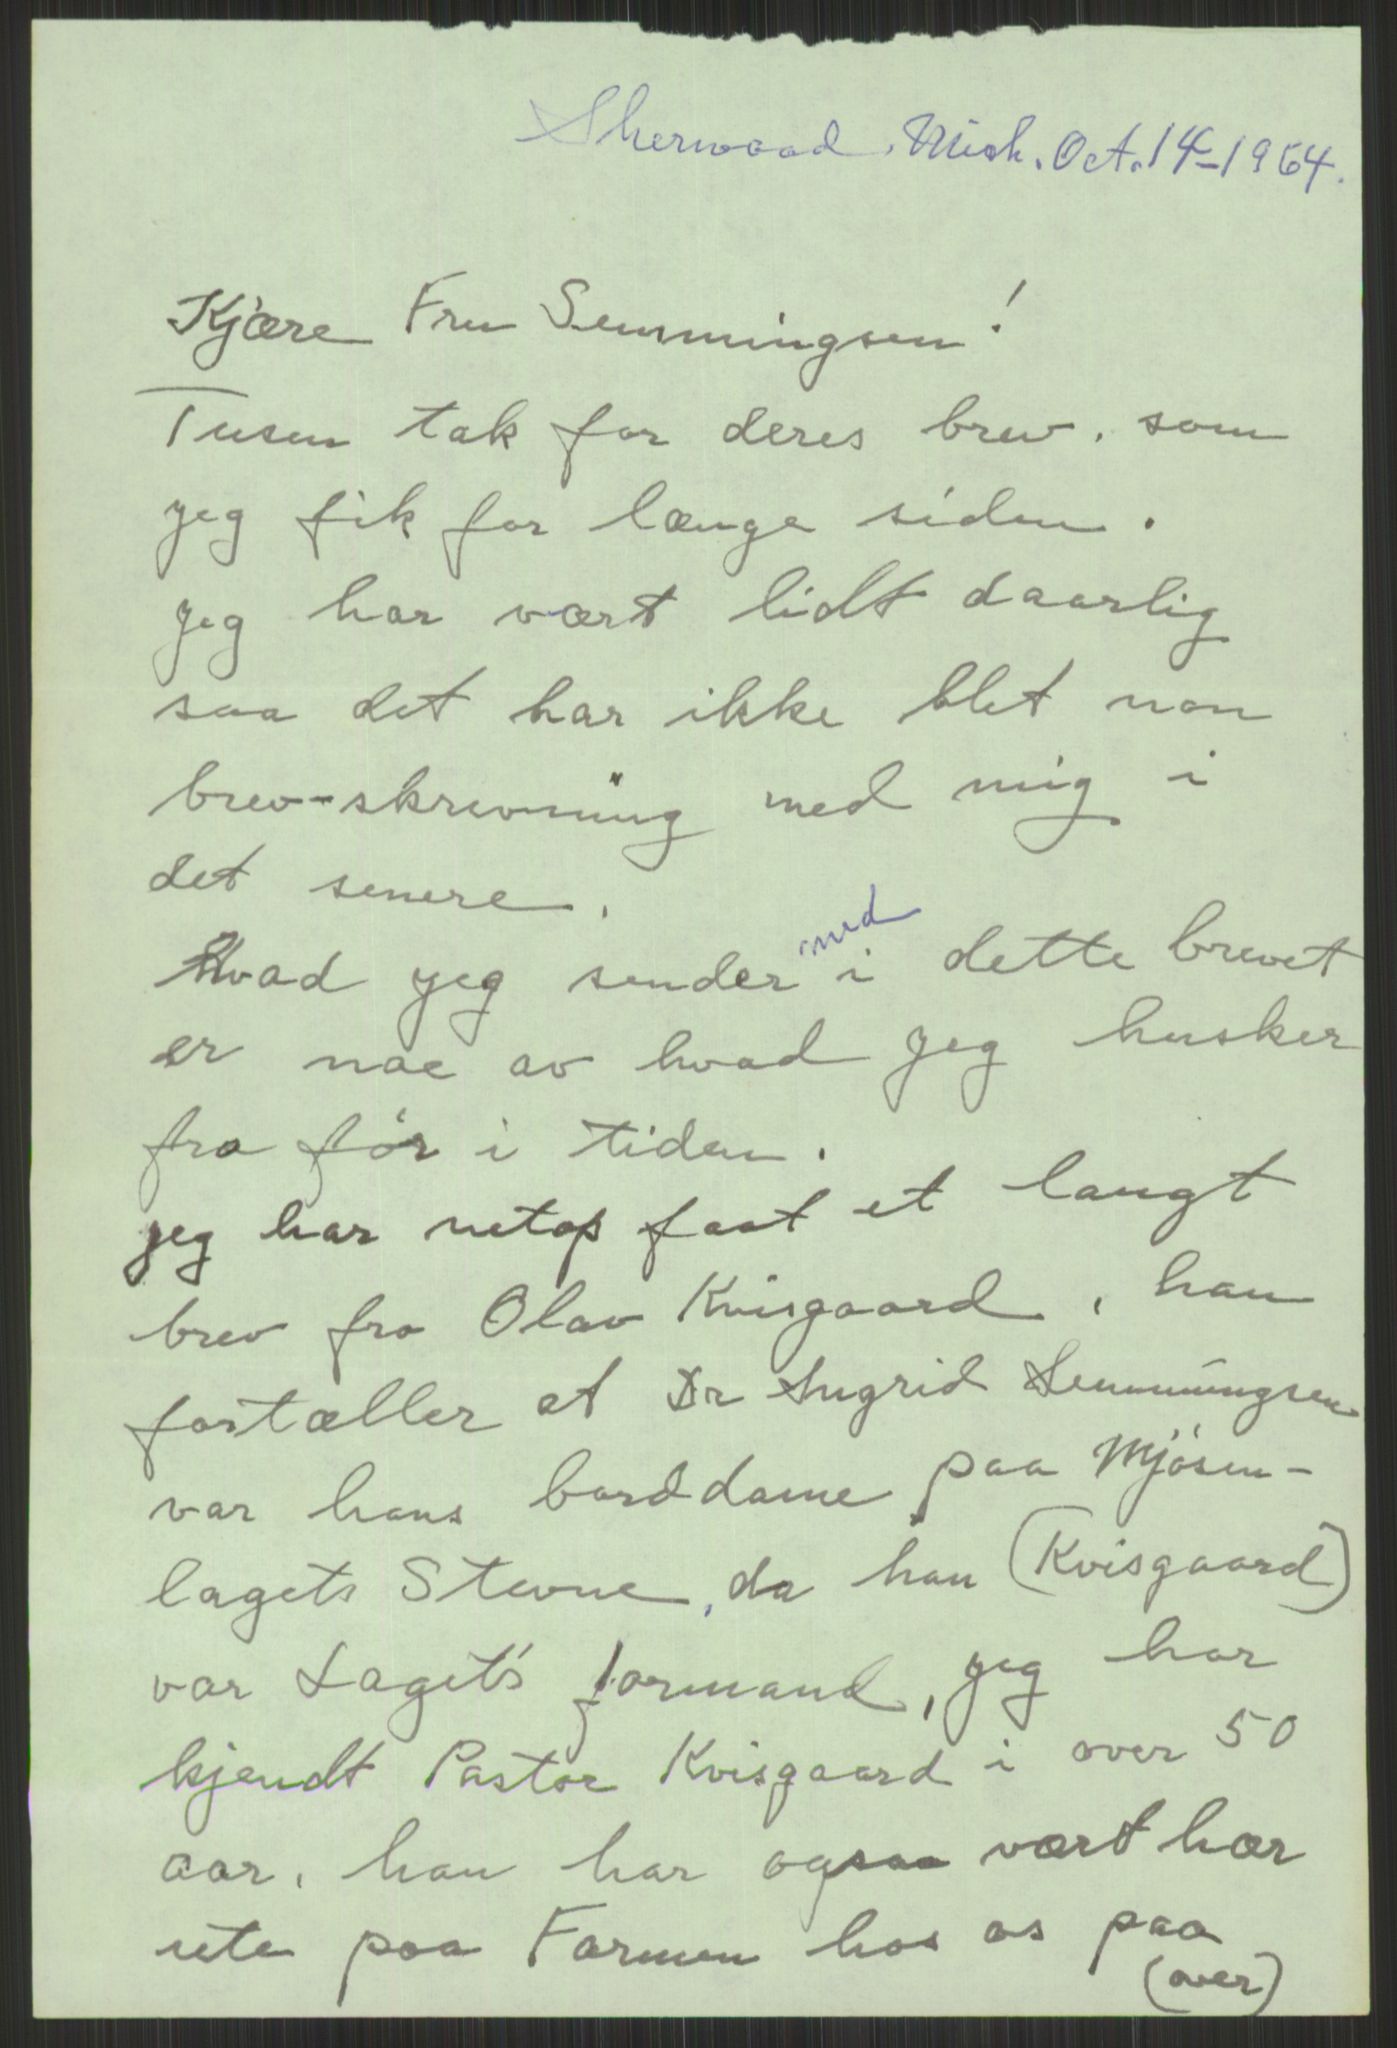 Sherwood, Mich. Oct. 14-1964.
Kjære Fru Semmingsen!
Tusen tak for deres brev, som
jeg fik for længe siden.
jeg har vært lidt daarlig
saa det har ikke blet non
brev-skrevning med mig i
det senere.
med
Hvad jeg sender i dette brevet
er noe av hvad jeg husker
fra før i tiden.
jeg har netop faat et langt
brev fra Olav Kvisgaard, han
fortæller at Dr Ingrid Semmingsen
var hans borddame paa Mjøsen-
lagets Stevne, da han (Kvisgaard)
var Laget's formand, jeg har
kjendt Pastor Kvisgaard i over 50
aar, han har ogsaa vært hær
ute paa Farmen hos os paa
(over)